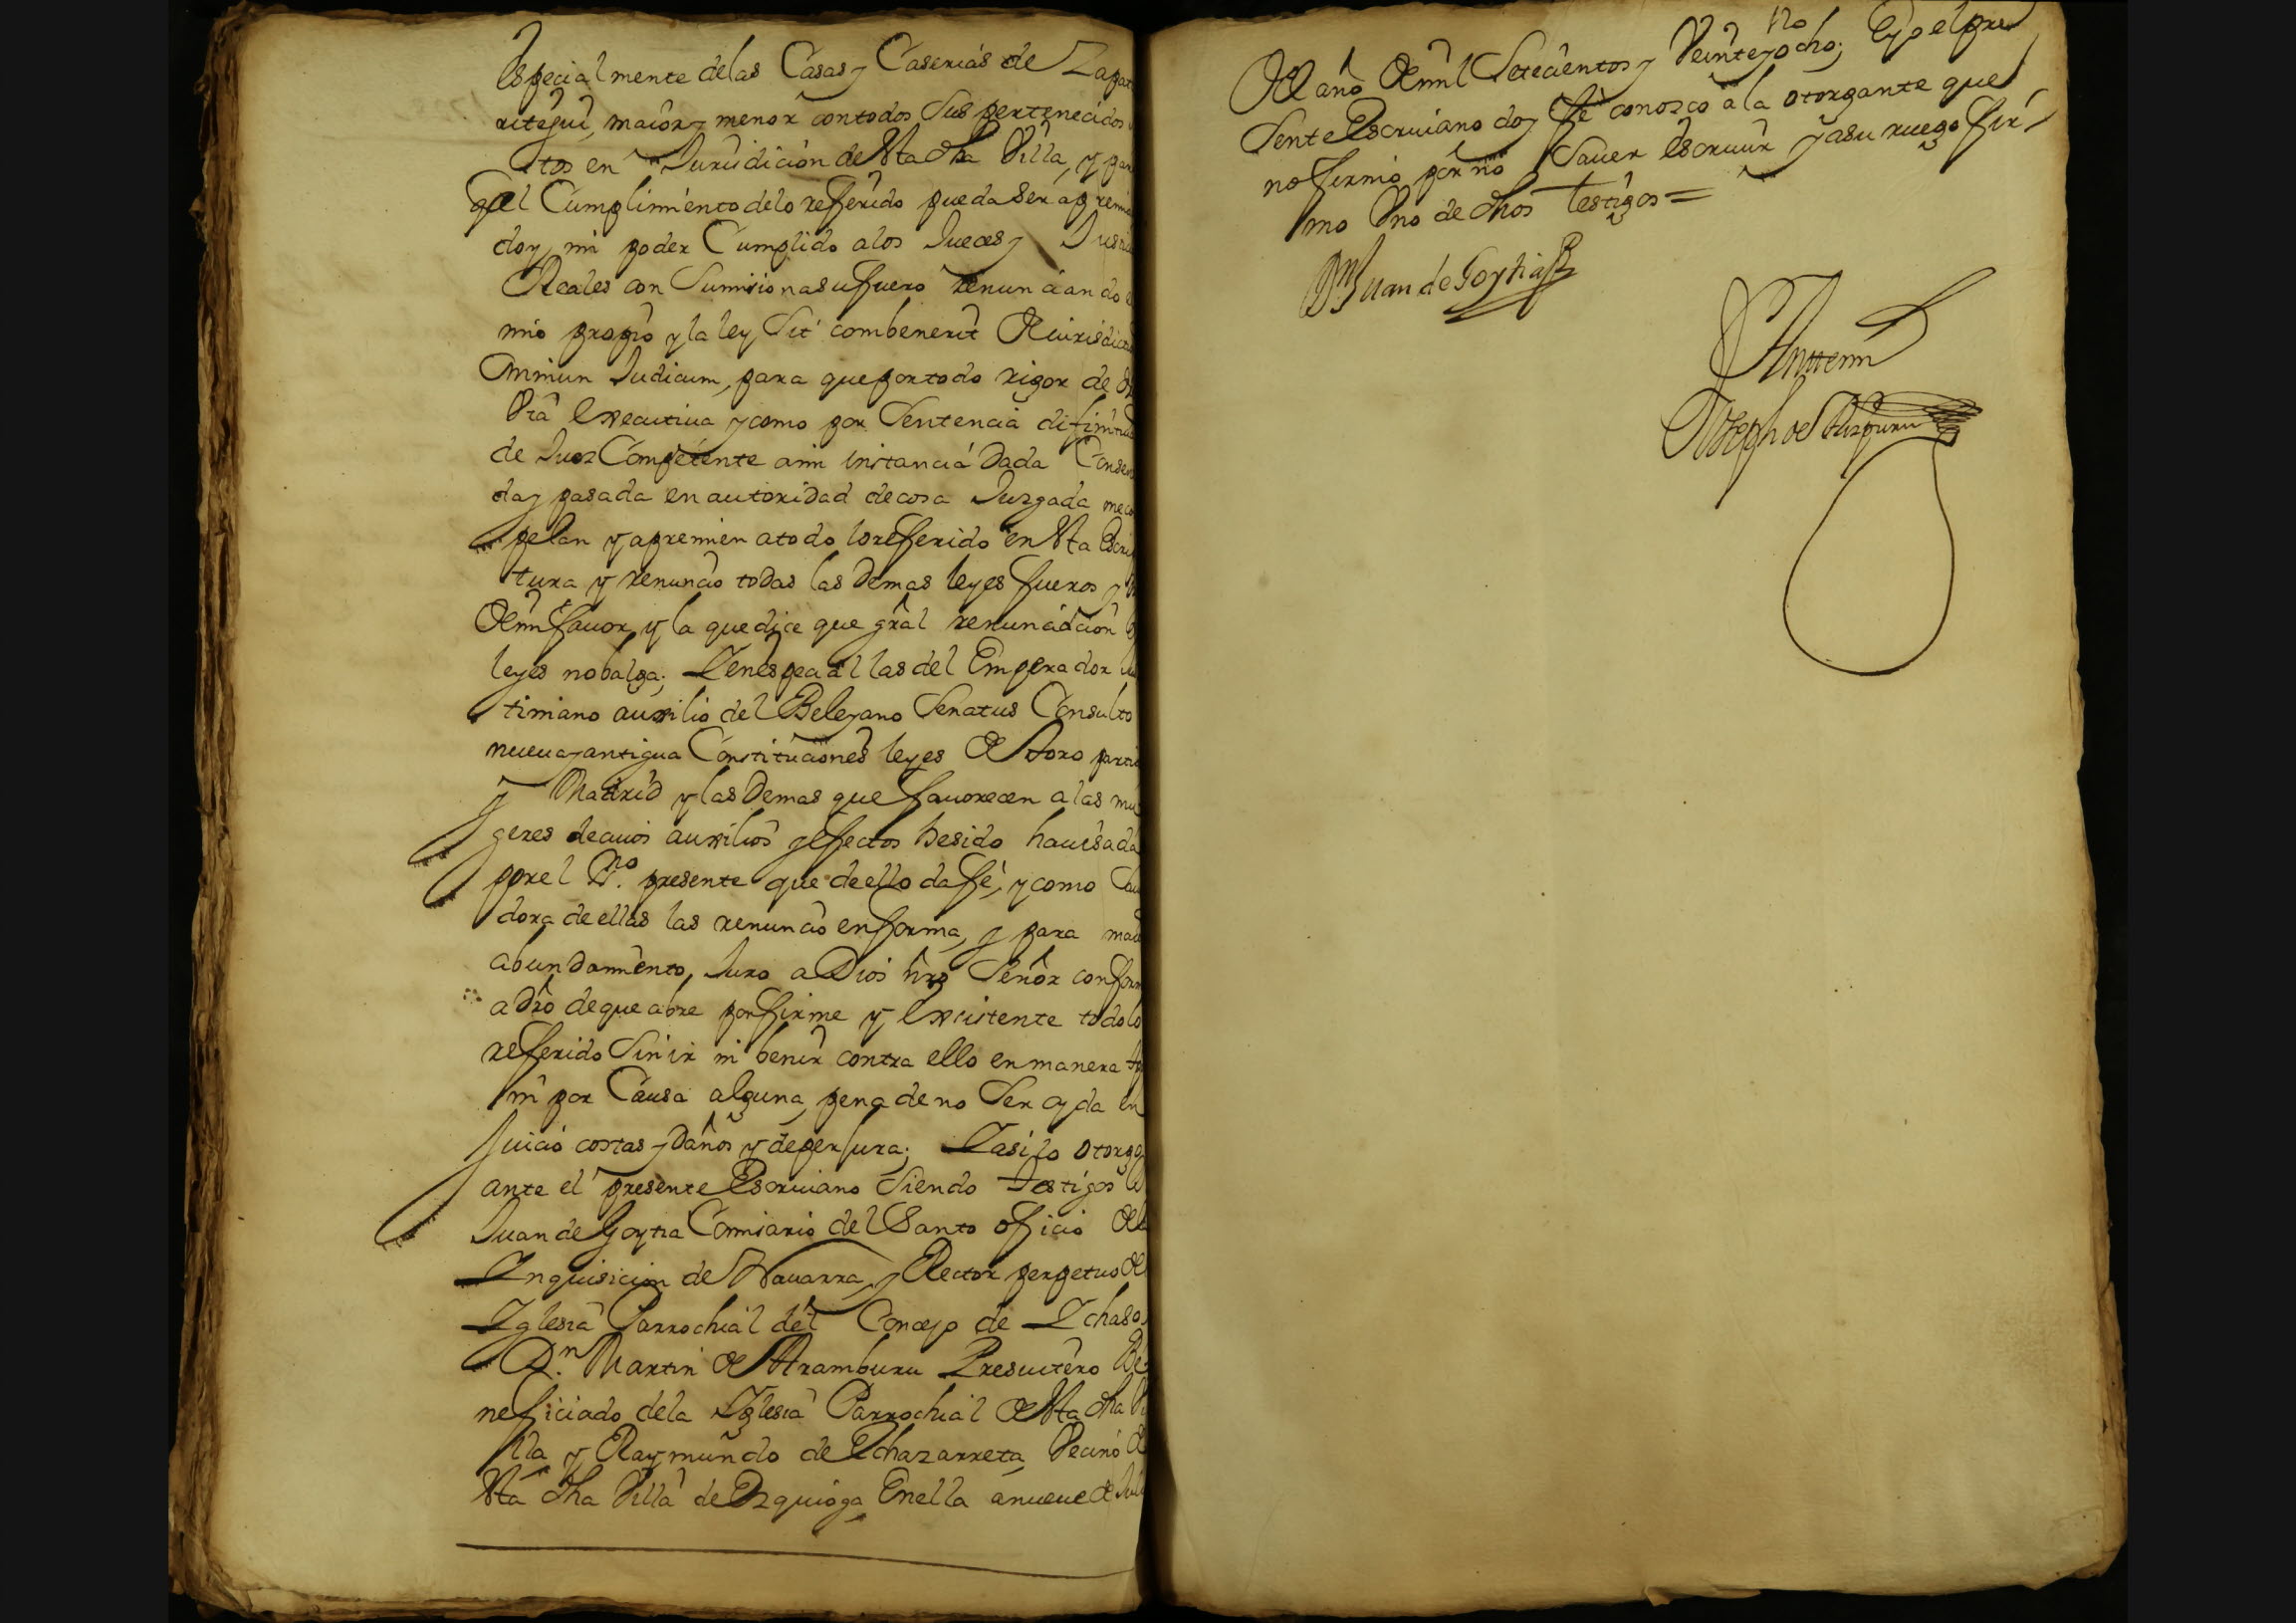 especialmente delas Casas y Caserias de Zapat
ritegui, maior y menor contodos Sus pertenecidos
tos en Jurisdicion de Vta dha Villa, y par
qel Cumplimiento delo refferido pueda ser apremia
doy mi poder Cumplido alos Jueces y Justi
Reales con Sumision asu fuero renunciando e
mio propio y la ley Sit combenerit de iurisdicio
omnium Judicum, para que por todo rigor de
Via executiva y como por Sentencia difinitiua
de Juez Competente a mi instancia dada Consen
da y pasada en autoridad de cosa Juzgada me co
pelan y apremien a todo lo refferido en Vta Escri
tura y renuncio todas las demas leyes fueros y
de mi favor, y la que dice que gral renunciacion
leyes no balga; Y en especial las del Emperador
tiniano auxilio del Beleyano Senatus Consulto
nueua y antigua Constituciones leyes de Toro parti
y Madrid y las demas que fauorecen a las mu
geres de cuios auxilios y efectos he sido hauisada
por el Ssno. presente que de ello da fe, y como Sau
dora de ellas las renuncio en forma, y para maio
abundamiento, Juro a Dios nro Señor conform
a dro de que abre por firme y exsistente todo lo
refferido Sin ir ni benir contra ello en manera
ni por Causa alguna, pena de no Ser oyda en
Juicio costas y Daños y de perjura; Y asi lo otorgo
ante el presente Escriuano Siendo testigos
Juan de Goytia Comisario del Santo oficio de la
Inquisicion de Nauarra, y Rector perpetuo de
Yglesia Parrochial del Concejo de Ychaso,
Dn. Martin de Aramburu Presuitero Be
neficiado dela Yglesia Parrochial de Vta dha Vi
lla y Raymundo de Echazarreta, Vecino de
Vta dha Villa de Ezquioga, En ella a nueue de Juli
del año de mil Setecientos y Veinteyocho; Eyo el pre
sente Escriuano doy fe conozco a la otorgante que
no firmo por no Sauer escriuir y asu ruego fir
mo Vno de dhos testigos =
Dn Juan de Goytia
Ante mi
Joseph de Aizpuru